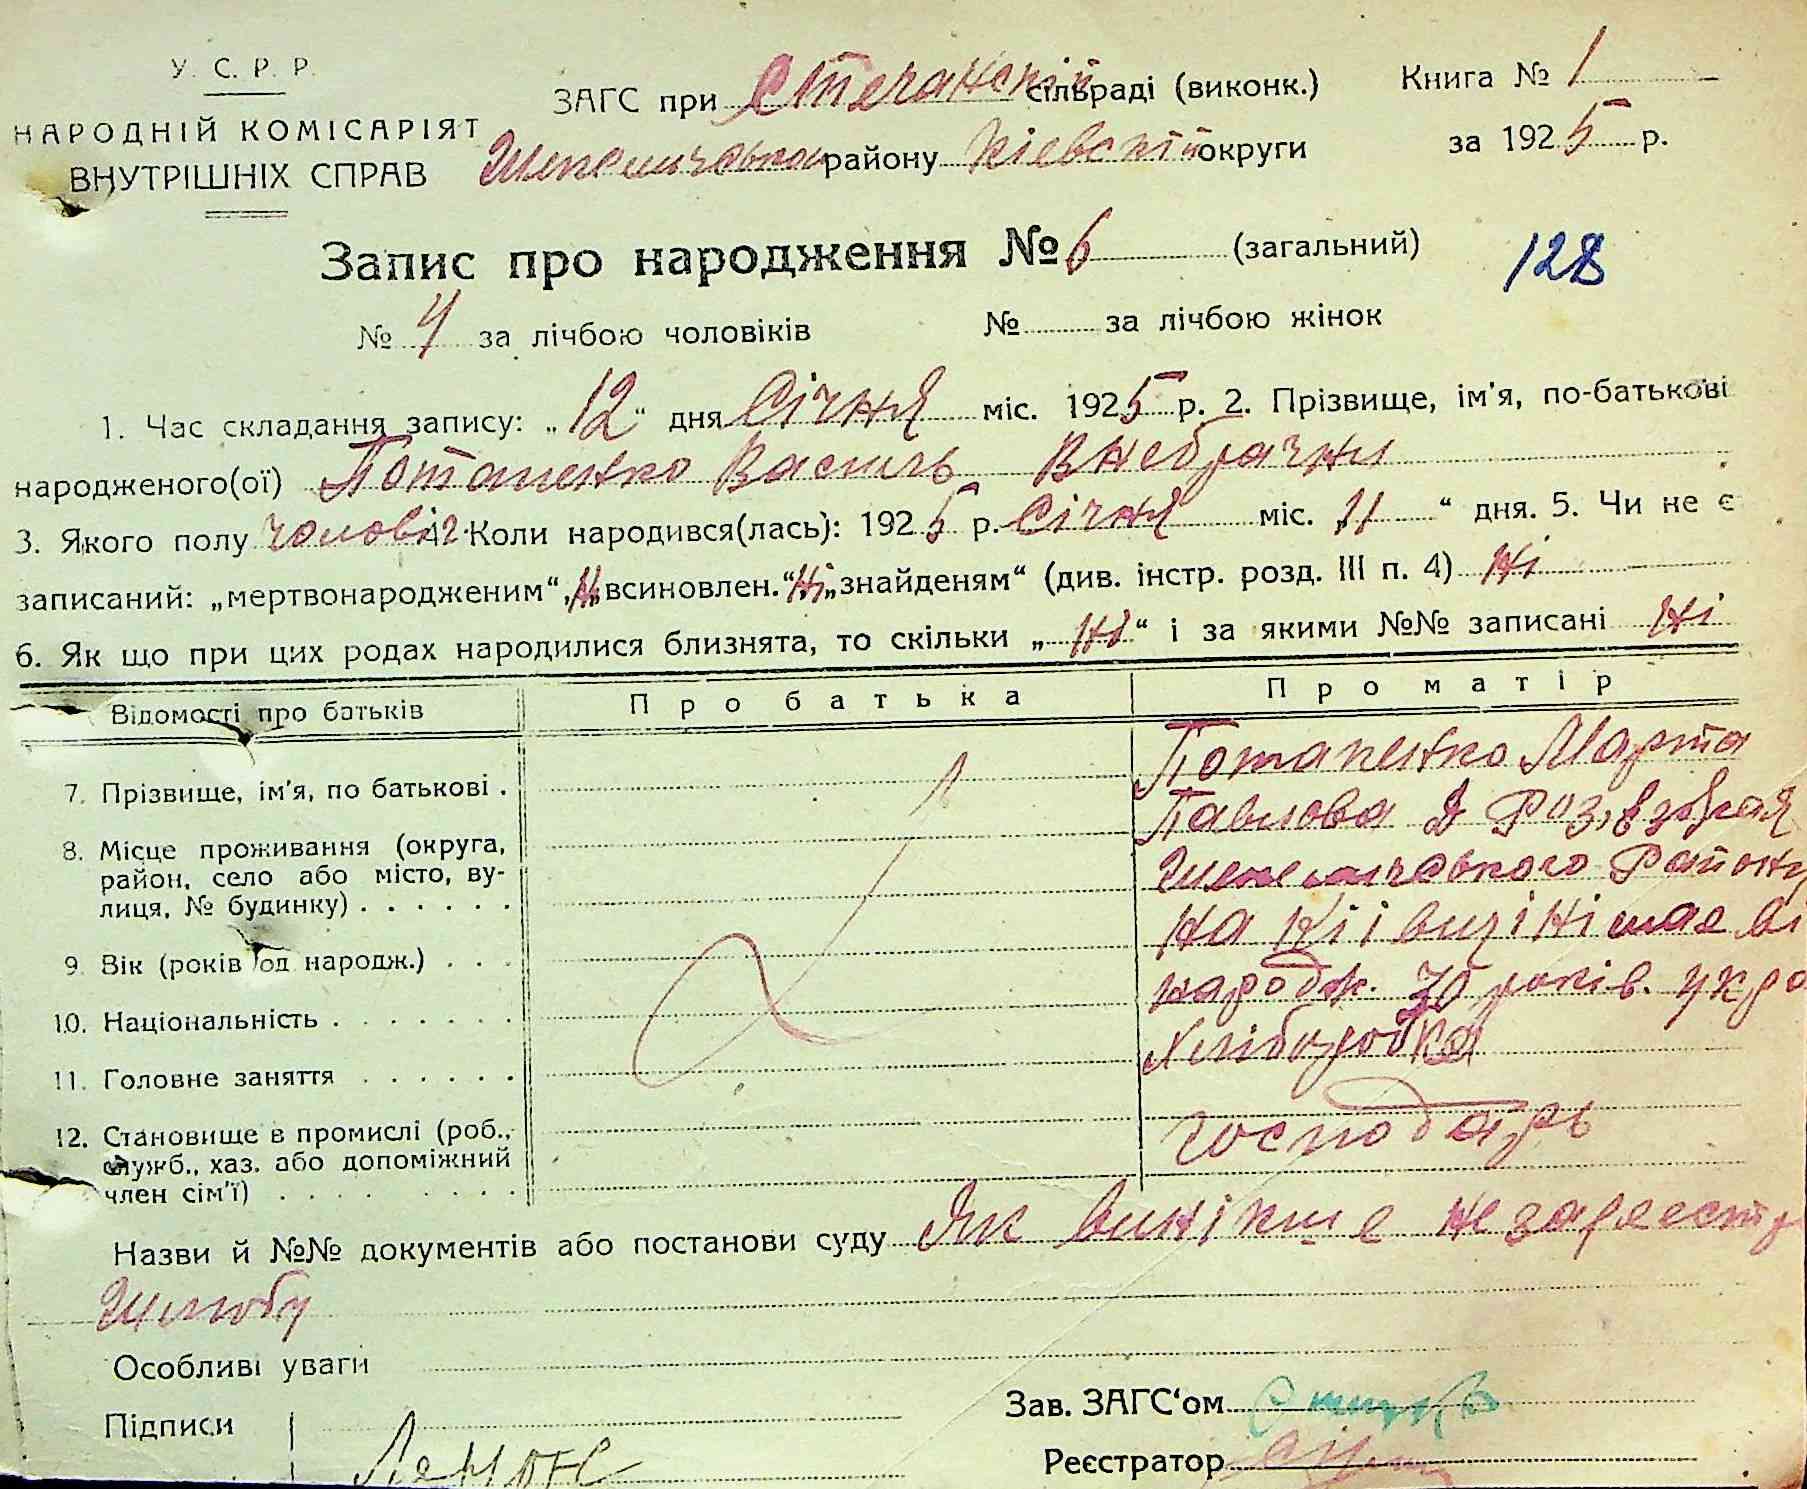 У. С. Р. Р.
НАРОДНІЙ КОМІСАРІЯТ
ВНУТРІШНІХ СПРАВ
ЗАГС при сільраді (виконк.)
району Кіевскій округи
Книга № 1
за 1925 р.
Запис про народження № 6 (загальний)
128
№ 4 за лічбою чоловіків № за лічбою жінок
1. Час складання запису: „12“ дня Січня міс. 1925 р. 2. Прізвище, ім'я, по-батькові
народженого(ої) Потапенко Василь Внебрачни
3. Якого полу чоловіч 4. Коли народився(лась): 1925 р. Січня міс. „11“ дня. 5. Чи не є
записаний: „мертвонародженим“, Ні „всиновлен.“ Ні „знайденям“ (див. інстр. розд. III п. 4) Ні
6. Як що при цих родах народилися близнята, то скільки „Ні“ і за якими №№ записані Ні
Відомості про батьків
Про батька
Про матір
7. Прізвище, ім'я, по батькові .
8. Місце проживання (округа,
район, село або місто, ву-
лиця, № будинку) . . . . . .
9. Вік (років од народж.) . . .
10. Національність . . . . . . .
11. Головне заняття . . . . . .
12. Становище в промислі (роб.,
служб., хаз. або допоміжний
член сім'ї) . . . . . . . . . .
Потапенко Марта
Павлова
Району
на Київщіні має ві
народж. 30 років. укра
Хліборобка
Господарь
Назви й №№ документів або постанови суду Як не зареестр
Шлюбу
Особливі уваги
Підписи
Зав. ЗАГС'ом
Реєстратор